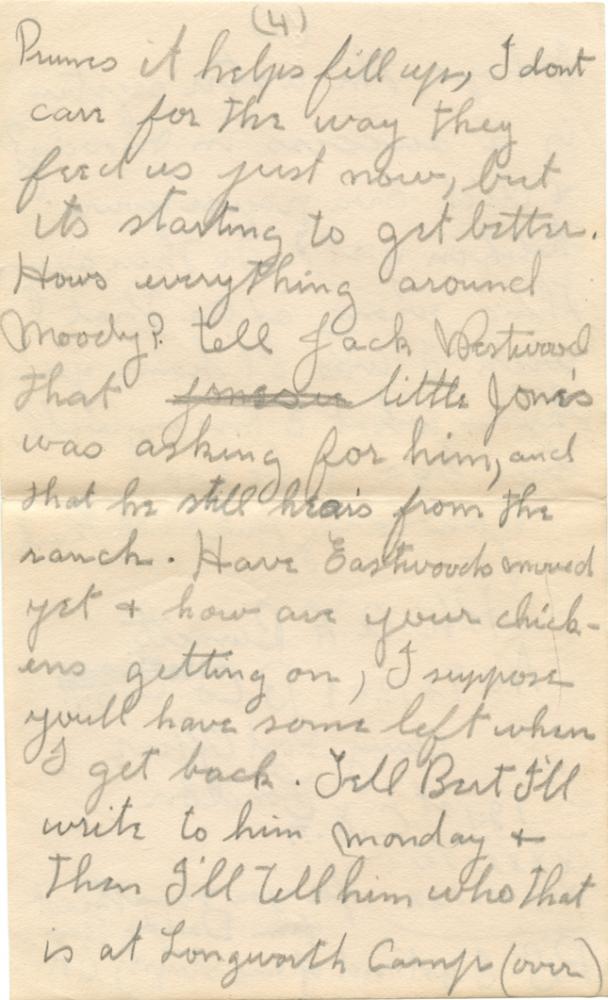 (4)
Prunes it helps fill up, I dont
care for the way they
feed us just now, but
its starting to get better.
Hows everything around
Moody? tell Jack Westwood
that little Jones
was asking for him, and
that he still hears from the
ranch. Have Eastwoods moved
yet + how are your chick-
ens getting on, I suppose
youll have some left when
I get back. Tell Bert I'll
write to him monday +
then I'll tell him who that
is at Longworth Camp (over)